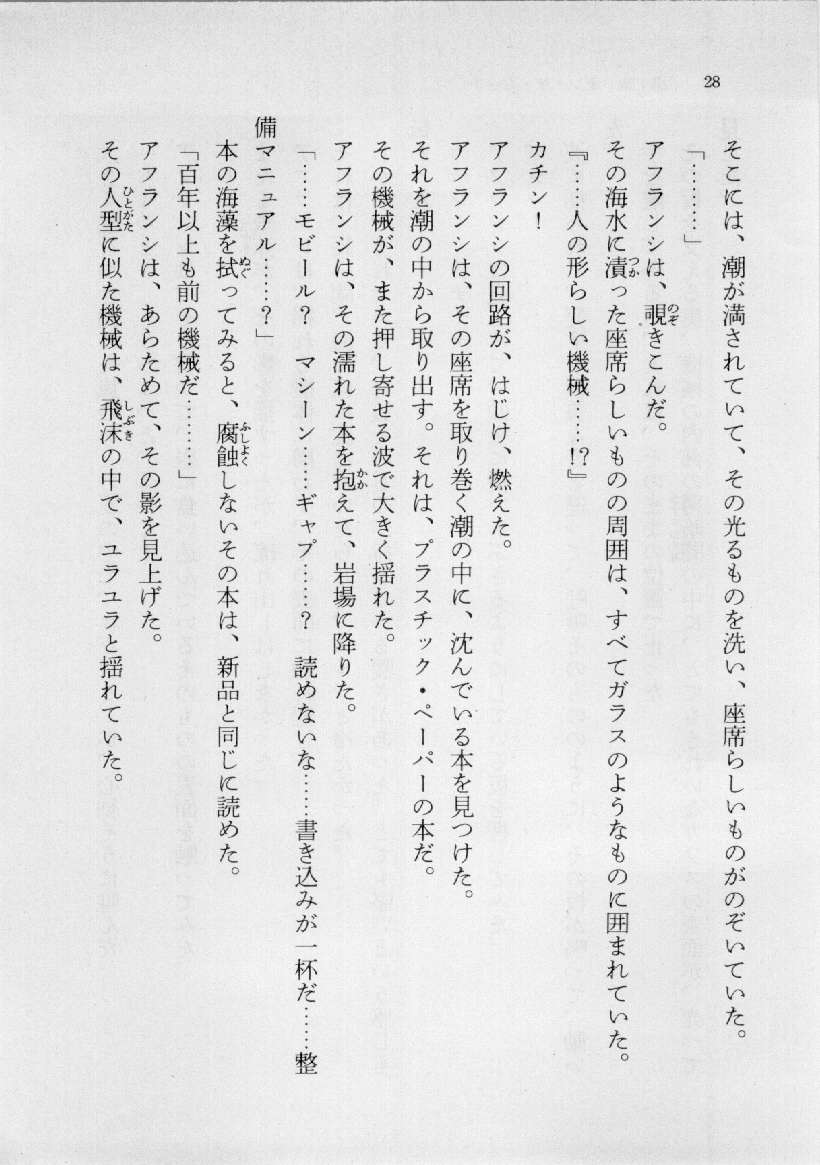 28
そこには、潮が満されていて、その光るものを洗い、座席らしいものがのぞいていた。
「………」
アフランシは、覗きこんだ。
その海水に漬った座席らしいものの周囲は、すべてガラスのようなものに囲まれていた。
『……人の形らしい機械……!?』
カチン！
アフランシの回路が、はじけ、燃えた。
アフランシは、その座席を取り巻く潮の中に、沈んでいる本を見つけた。
それを潮の中から取り出す。それは、プラスチック・ペーパーの本だ。
その機械が、また押し寄せる波で大きく揺れた。
アフランシは、その濡れた本を抱えて、岩場に降りた。
「……モビール？　マシーン……ギャプ……？　読めないな……書き込みが一杯だ……整
備マニュアル……？」
本の海藻を拭ってみると、腐蝕しないその本は、新品と同じに読めた。
「百年以上も前の機械だ………」
アフランシは、あらためて、その影を見上げた。
その人型に似た機械は、飛沫の中で、ユラユラと揺れていた。